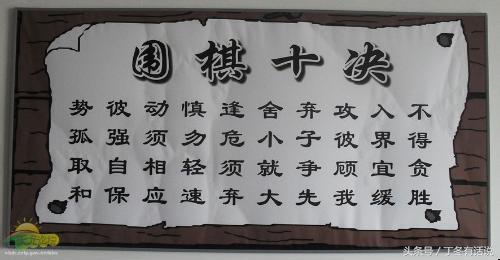 围棋十决
不得贪胜
入界宜缓
攻彼顾我
弃子争先
舍小就大
逢危须弃
慎勿轻速
动须相应
彼强自保
势孤取和
头条号／丁冬有话说